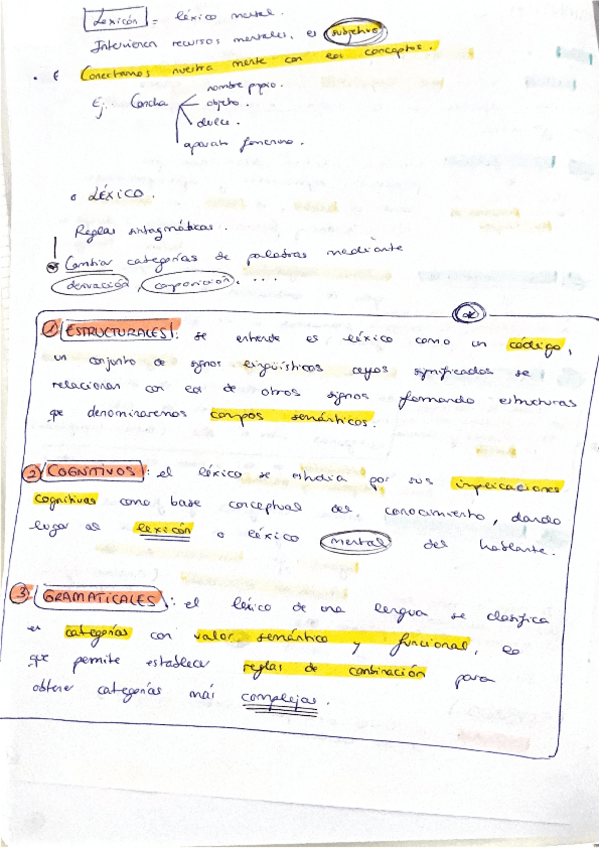 Lexicón = léxico mental.
Intervienen recursos mentales, es subjetivo
• Conectamos nuestra mente con los conceptos.
Ej. Concha
nombre propio.
objeto.
dulce.
aparato femenino.
o LÉXICO.
Reglas sintagmáticas.
Cambiar categorías de palabras mediante
derivación, composición, ....
1 ESTRUCTURALES: se entiende el léxico como un código,
un conjunto de signos lingüísticos cuyos significados se
relacionan con el de otros signos formando estructuras
que denominaremos campos semánticos.
2 COGNITIVOS: el léxico se estudia por sus implicaciones
cognitivas como base conceptual del conocimiento, dando
lugar al lexicón o léxico mental del hablante.
3 GRAMATICALES: el léxico de una lengua se clasifica
en categorías con valor semántico y funcional, lo
que permite establecer reglas de combinación para
obtener categorías más complejas.